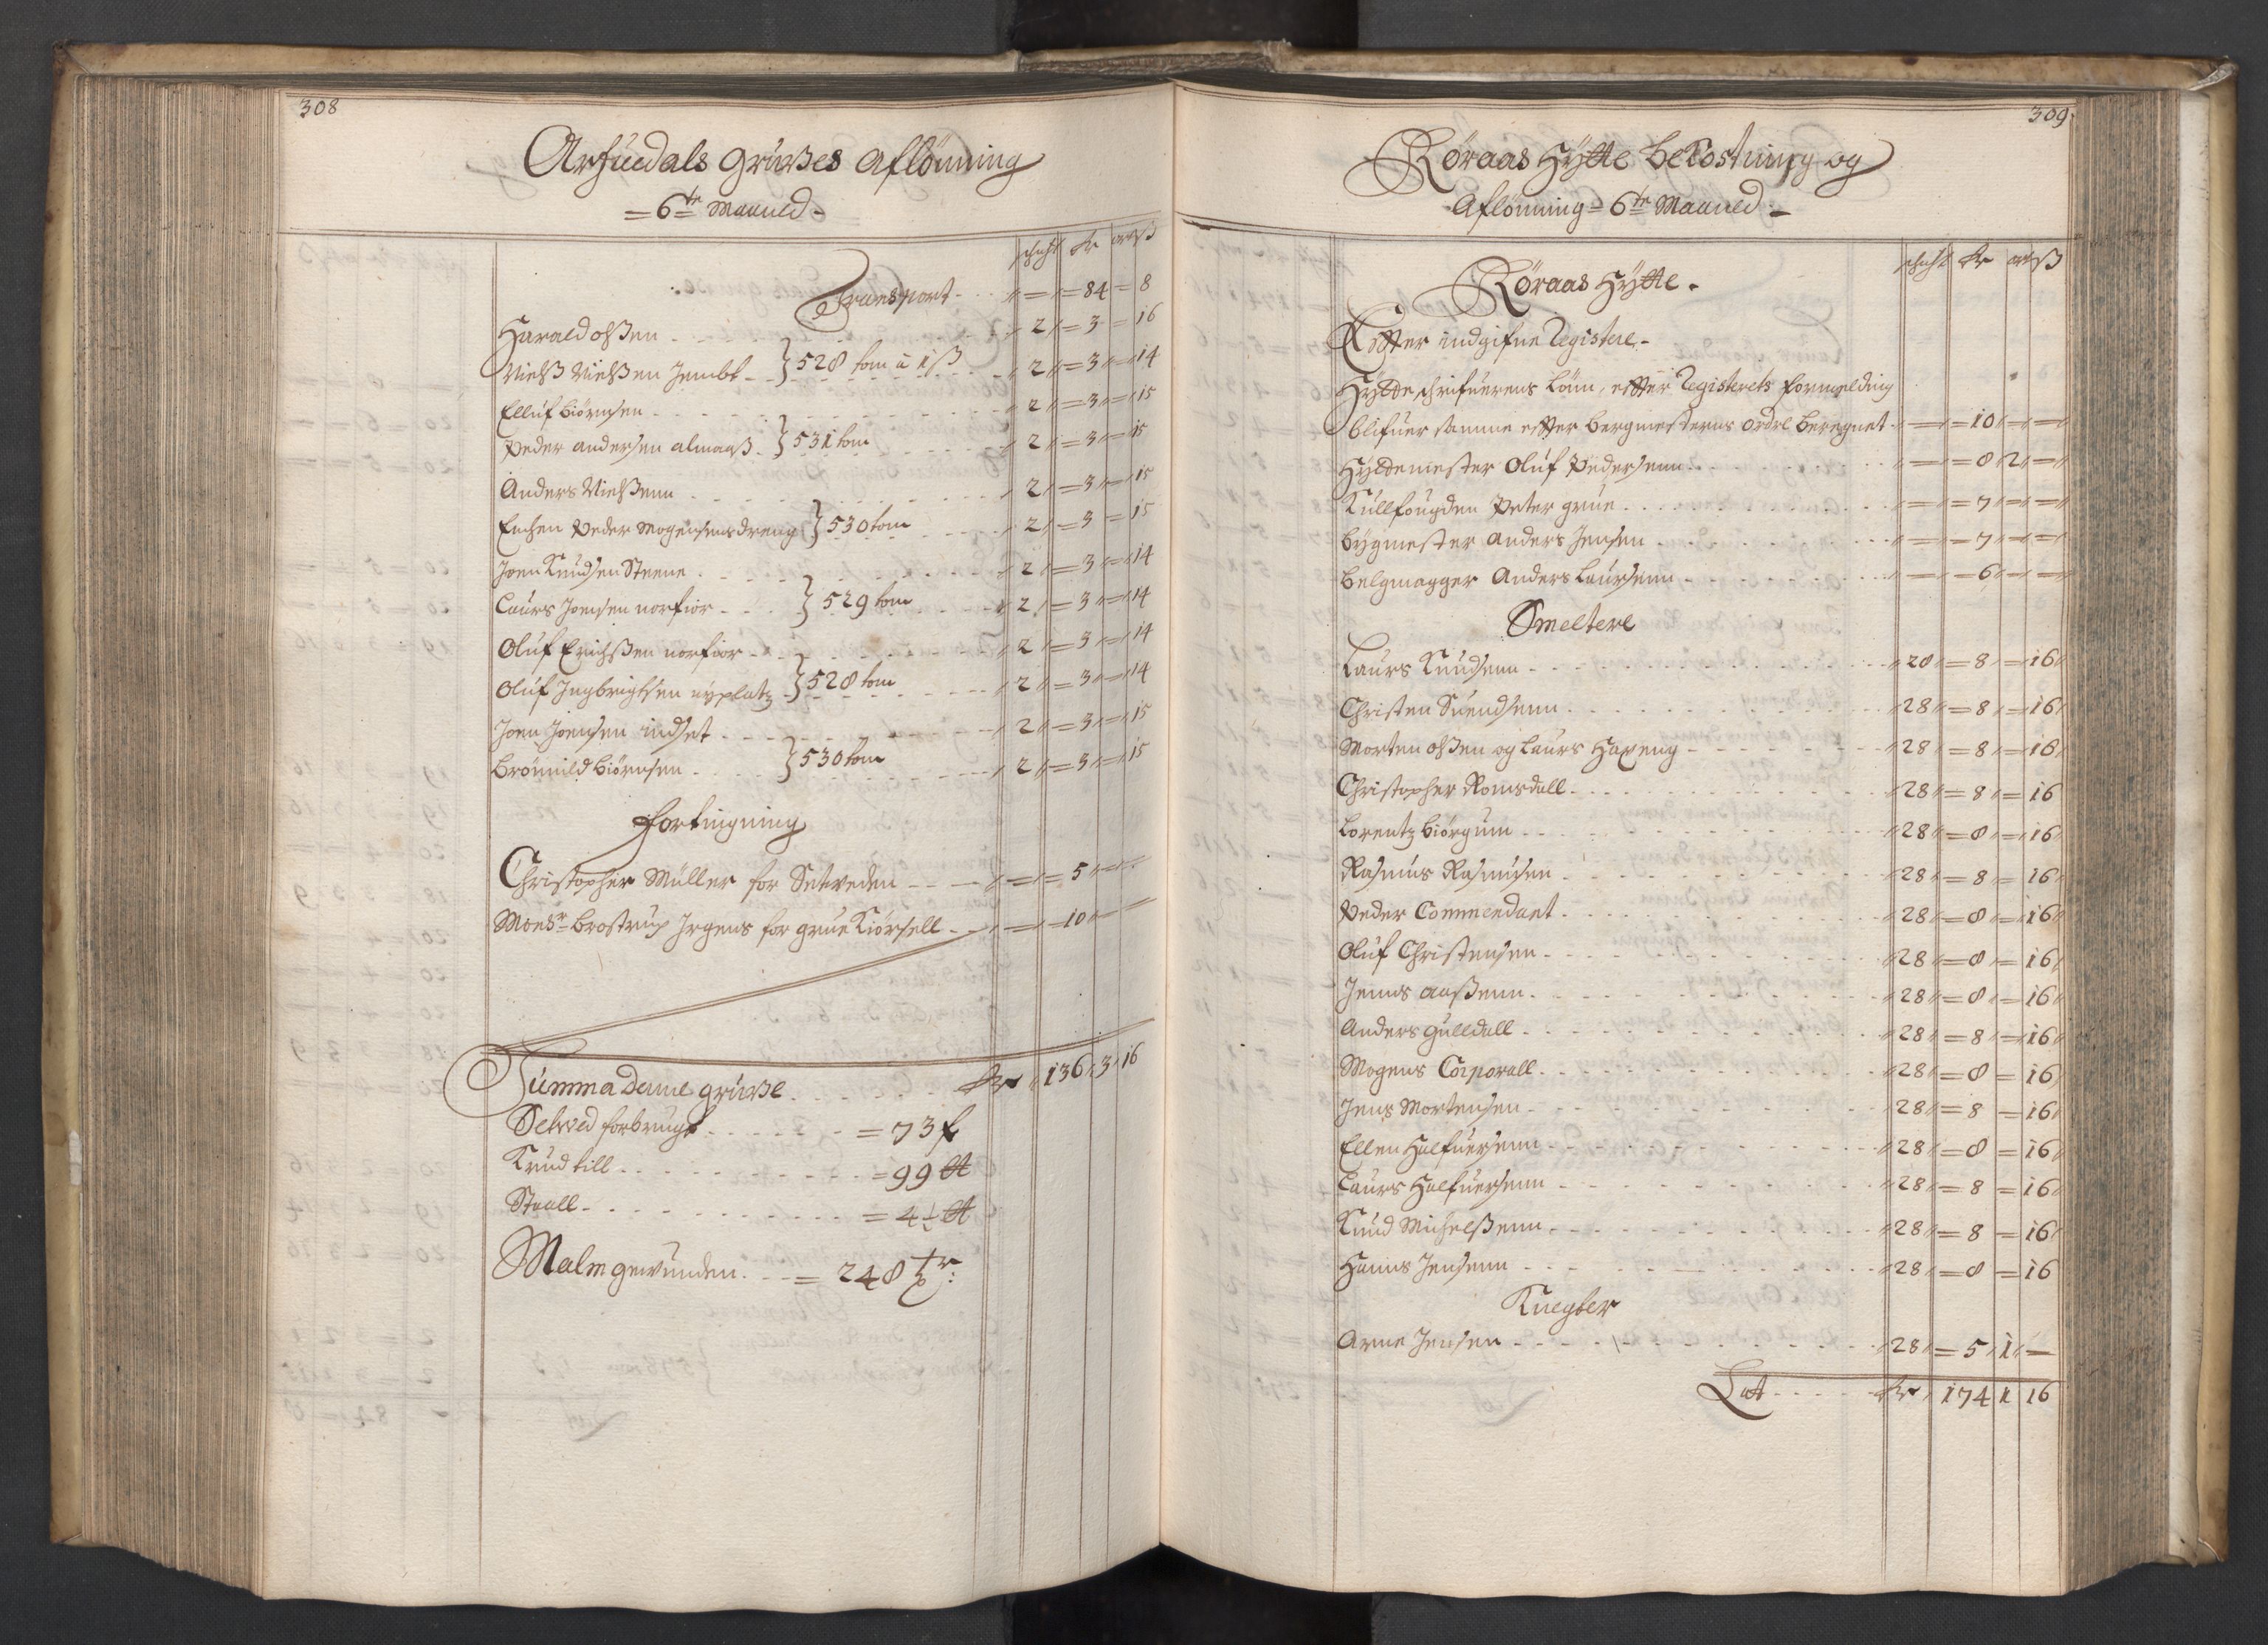 308
Arfuedals Grußes Aflönning
= 6te Maaned -
schicht Rdr ort ß
Transport - - - " = " = 84 = 8
Harald Olßen - - - 2 = 3 = 16
Nielß Nielßen Jembt - } 528 tom a 1 ß - - 2 = 3 = 14
Elluf Biörnsen - - - 2 = 3 = 15
Peder Andersen Almaaß - } 531 tom - - 2 = 3 = 15
Anders Nielßenn - - - 2 = 3 = 15
Enchen Peder Mogensens dreng } 530 tom - - 2 = 3 = 15
Joen Knudsen Steene - - - 2 = 3 = 14
Laurs Joensen norfior - - } 529 tom - - 2 = 3 = 14
Oluf Erichßen norfior - - - 2 = 3 = 14
Oluf Ingbrigtsen nyplatz } 528 tom - - 2 = 3 = 14
Joen Joensen indset - - - 2 = 3 = 15
Brönnild Biörnsen - - } 530 tom - - 2 = 3 = 15
Fortingning
Christopher Müller for Setveden - - - = = 5 = =
Monsr Brostrup Jrgens for grue Kiörsell - - = 10 = =
Summa Denne grube - - - Rdr 136 " 3 " 16
Setved forbrugt - - - = 73 f
Krud till - - - = 99 ℔
Staall - - - = 4½ ℔
Malm gewunden - - = 248 tr:
309
Röraas Hÿtte bekostning og
Aflönning = 6te Maaned -
schicht Rdr ort ß
Röraas Hÿtte -
Effter indgifne Registere -
Hÿtteschrifuerens Löin, effter Registerets formelding
blifuer samme effter Bergmesterens ordre beregnet - = = 10 = =
Hÿttemester Oluf Pedersenn - - - = = 8 " 2 " =
Kullfougden Peter grue - - - = = 7 = =
Bÿgmester Anders Jensen - - - = = 7 = =
Belgmagger Anders Laursenn - - - = = 6 = =
Smeltere
Laurs Knudsenn - - - 28 = 8 = 16
Christen Suendsenn - - - 28 = 8 = 16
Morten Olßen og Laurs Haxeng - - - 28 = 8 = 16
Christopher Romsdall - - - 28 = 8 = 16
Lorentz Biörgum - - - 28 = 8 = 16
Rasmus Rasmusen - - - 28 = 8 = 16
Peder Commendant - - - 28 = 8 = 16
Oluf Christensen - - - 28 = 8 = 16
Jenns Aaßenn - - - 28 = 8 = 16
Anders Gulldall - - - 28 = 8 = 16
Mogens Corporall - - - 28 = 8 = 16
Jens Mortensen - - - 28 = 8 = 16
Ellen Halfuersenn - - - 28 = 8 = 16
Laurs Halfuersenn - - - 28 = 8 = 16
Knud Michelßenn - - - 28 = 8 = 16
Hanns Jensenn - - - 28 = 8 = 16
Knegter
Arne Jensen - - - 28 = 5 " 1 " =
Lat - - - Rdr 174 1 16